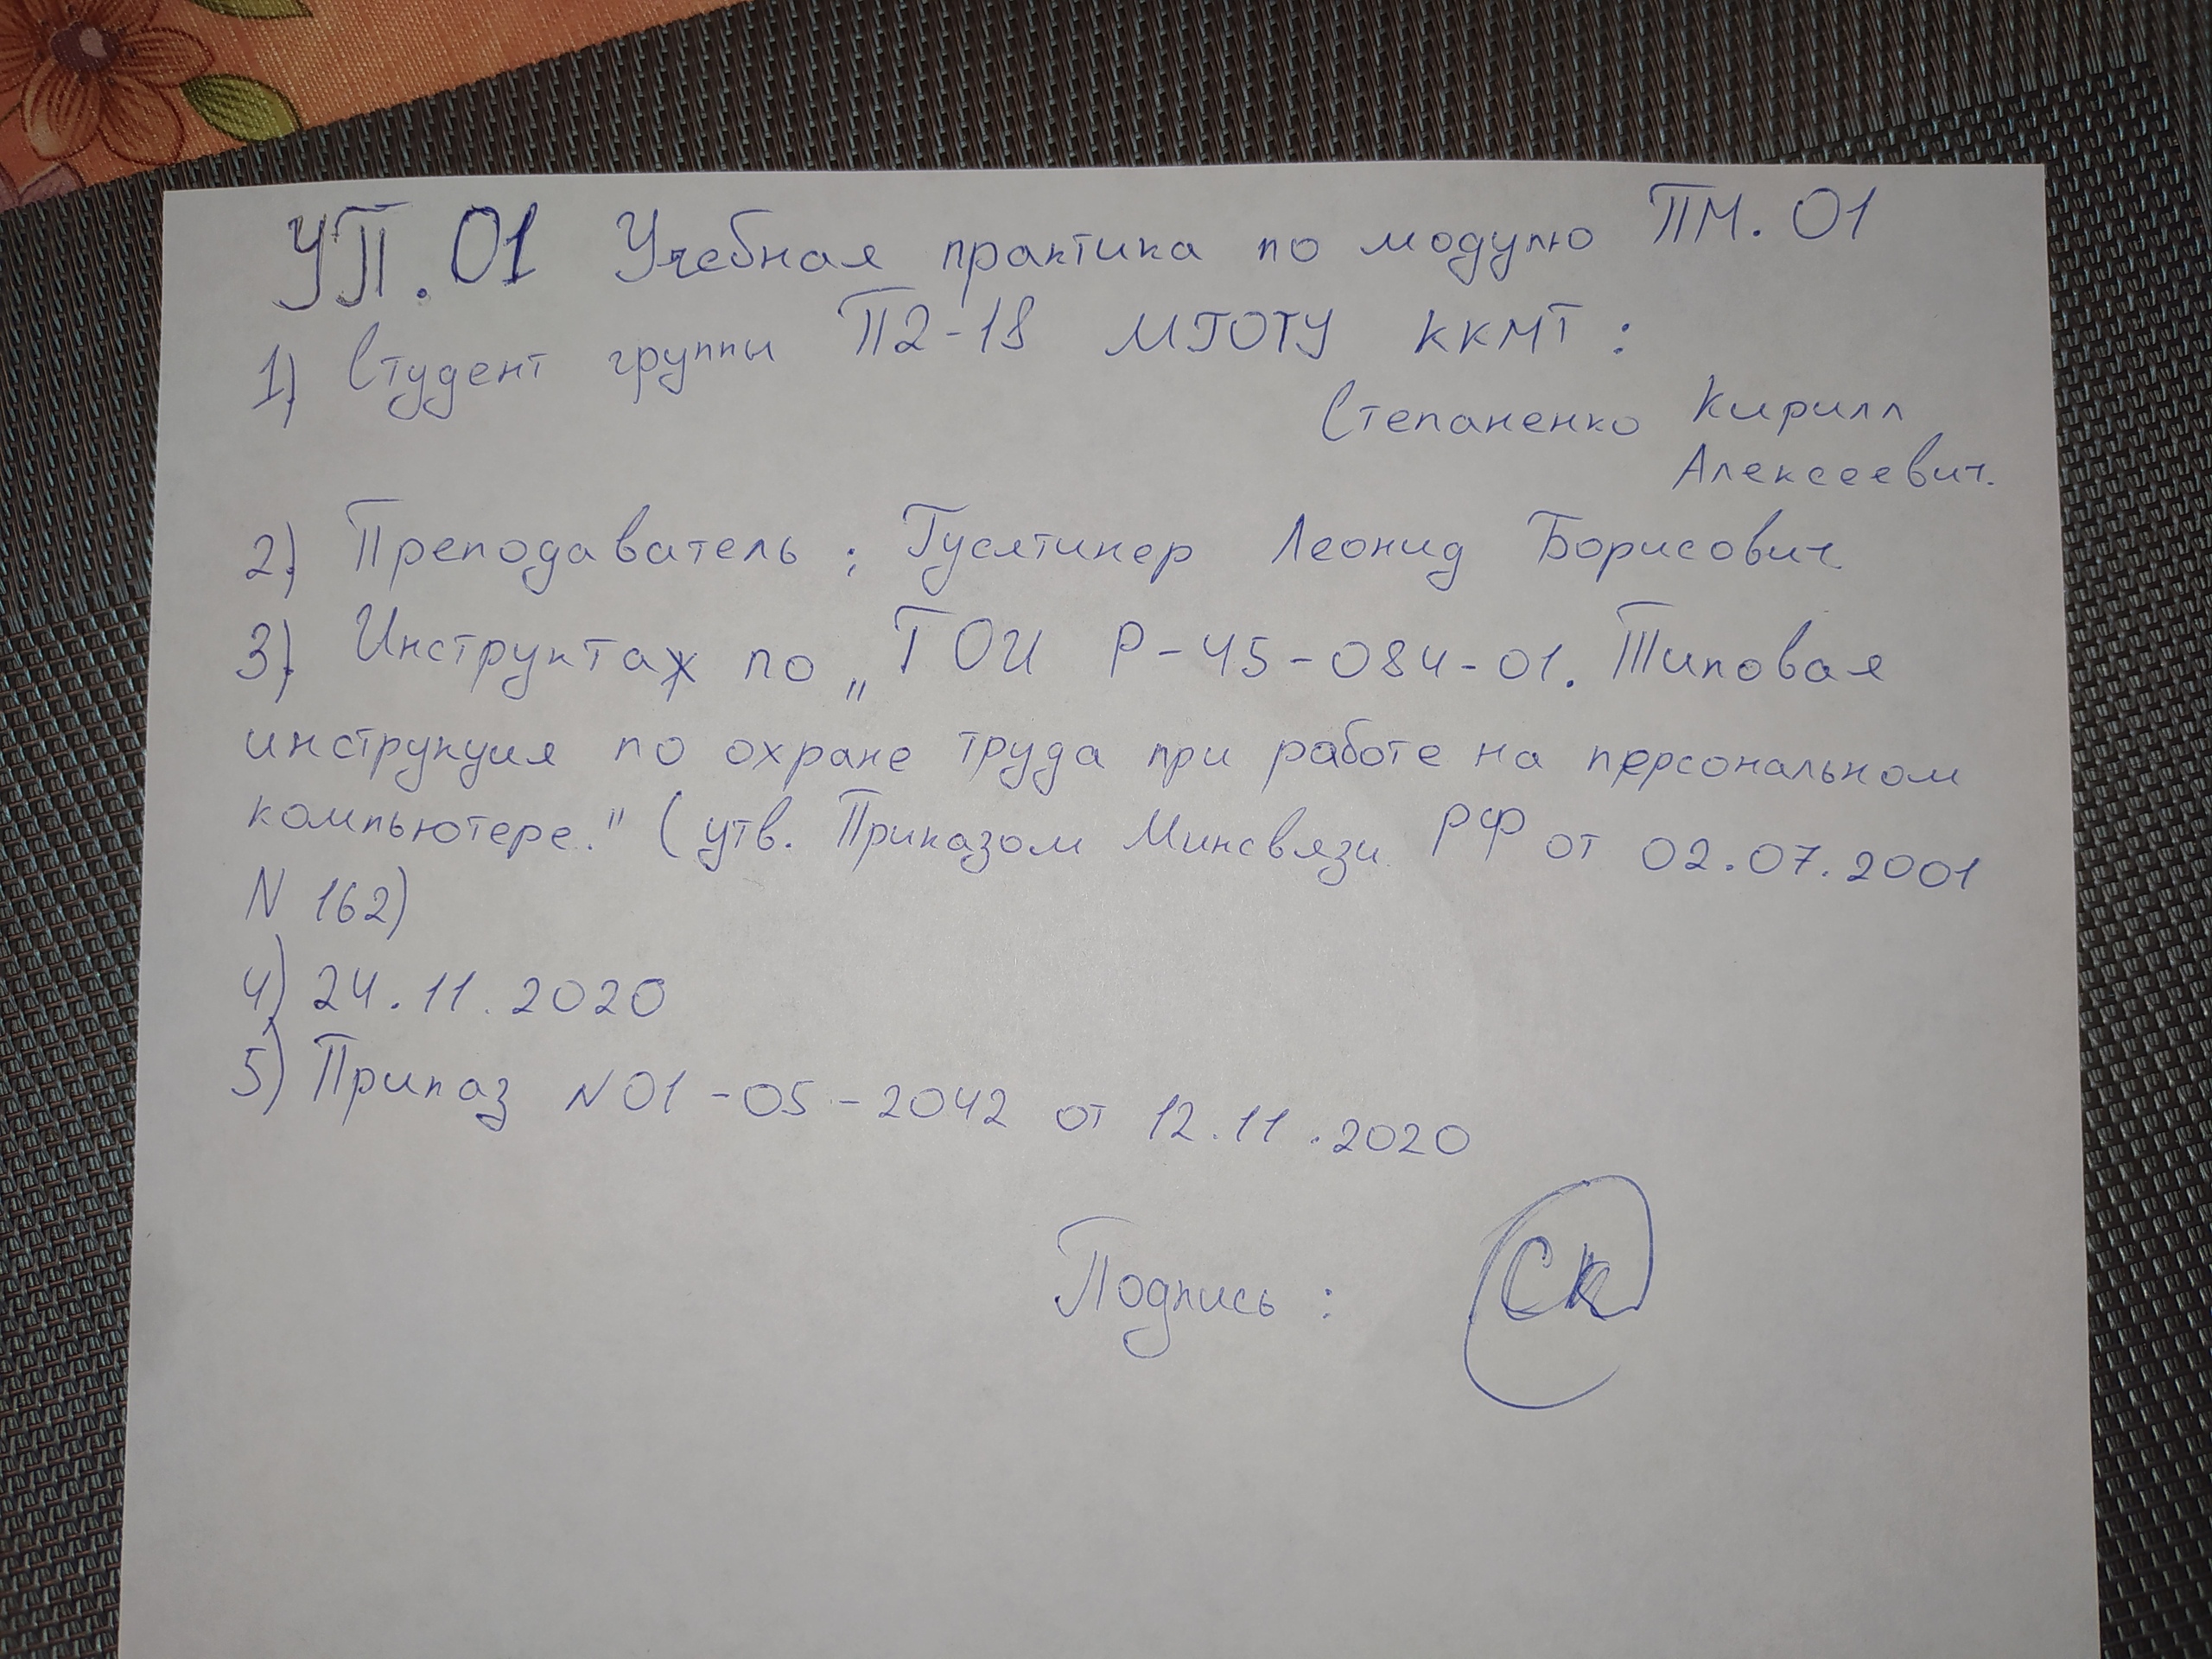 УП.01 Учебная практика по модулю ПМ.01
1) Студент группы П2-18 МГОТУ ККМТ:
Степаненко Кирилл
Алексеевич.
2) Преподаватель: Гусятинер Леонид Борисович
3) Инструктаж по „ТОИ Р-45-084-01. Типовая
инструкция по охране труда при работе на персональном
компьютере." (утв. Приказом Минсвязи РФ от 02.07.2001
N 162)
4) 24.11.2020
5) Приказ N01-05-2042 от 12.11.2020
Подпись: СК